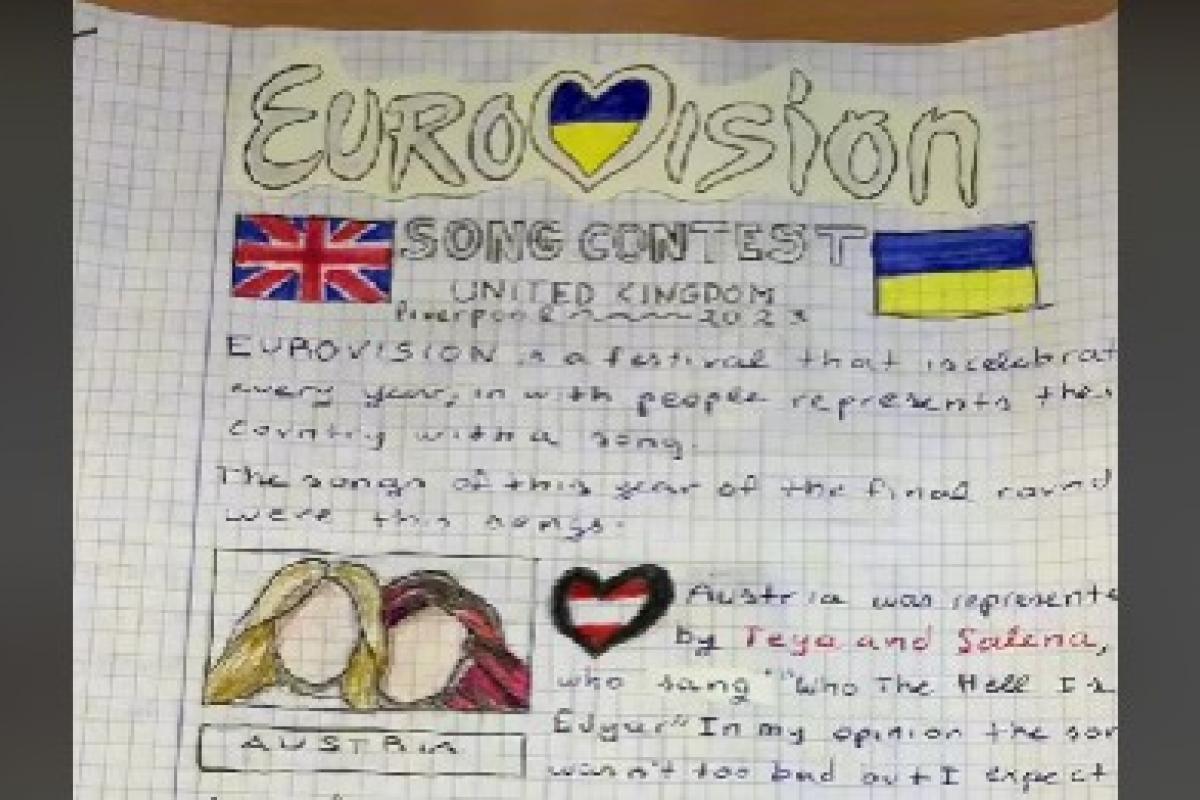 EUROVISION
SONG CONTEST
UNITED KINGDOM
Liverpool 2023
EUROVISION is a festival that is celebrat
every year, in with people represents the
country with a song.
The songs of this year of the final round
were this songs.
Austria was represente
by Teya and Salena,
who sang "Who The Hell Is
Edgar" In my opinion the son
wasn't too bad but I expect
AUSTRIA